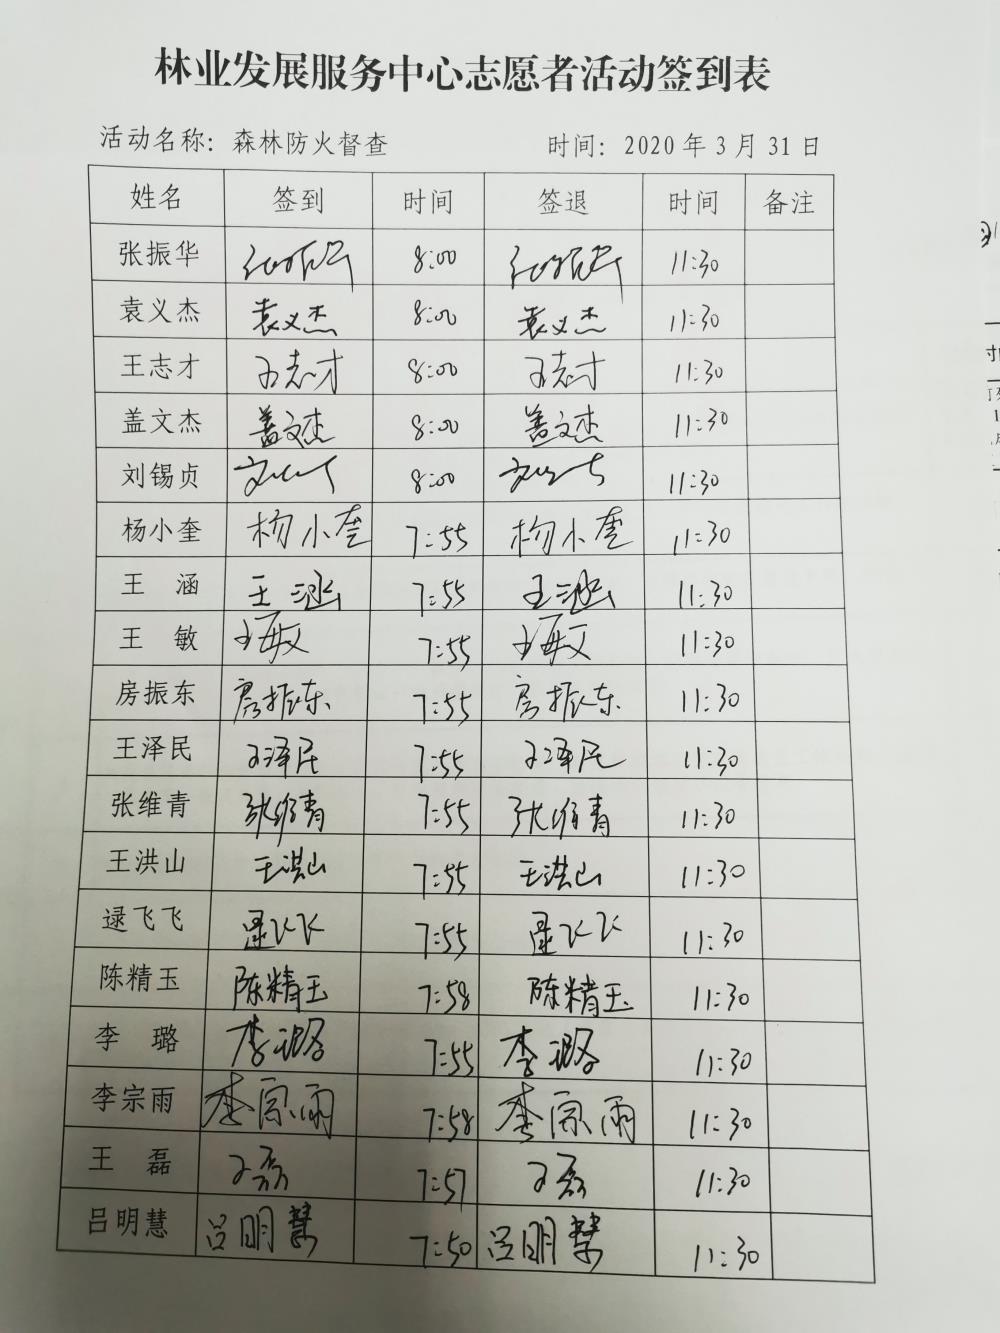 林业发展服务中心志愿者活动签到表
活动名称：森林防火督查 时间：2020年3月31日
姓名 签到 时间 签退 时间 备注
张振华 张振华 8:00 张振华 11:30
袁义杰 袁义杰 8:00 袁义杰 11:30
王志才 王志才 8:00 王志才 11:30
盖文杰 盖文杰 8:00 盖文杰 11:30
刘锡贞 8:00 11:30
杨小奎 杨小奎 7:55 杨小奎 11:30
王 涵 王涵 7:55 王涵 11:30
王 敏 王敏 7:55 王敏 11:30
房振东 房振东 7:55 房振东 11:30
王泽民 王泽民 7:55 王泽民 11:30
张维青 张维青 7:55 张维青 11:30
王洪山 王洪山 7:55 王洪山 11:30
逯飞飞 逯飞飞 7:55 逯飞飞 11:30
陈精玉 陈精玉 7:58 陈精玉 11:30
李 璐 李璐 7:55 李璐 11:30
李宗雨 李宗雨 7:58 李宗雨 11:30
王 磊 王磊 7:57 王磊 11:30
吕明慧 吕明慧 7:50 吕明慧 11:30